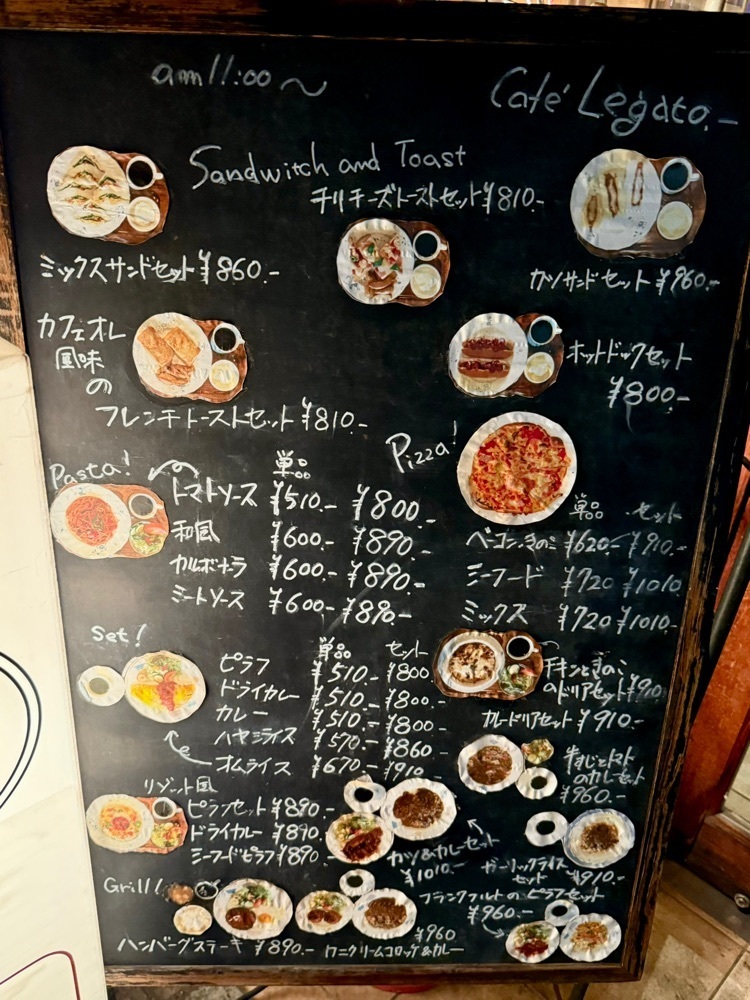 am11:00〜
Café Legato.-
Sandwitch and Toast
チリチーズトーストセット¥810.-
ミックスサンドセット¥860.-
カツサンドセット¥960.-
カフェオレ
風味
の
フレンチトーストセット¥810.-
ホットドックセット
¥800.-
Pizza!
単品 セット
ベーコン.きのこ¥620-¥910.-
シーフード ¥720 ¥1010
ミックス ¥720 ¥1010.-
Pasta!
単品
トマトソース ¥510.- ¥800.-
和風 ¥600.- ¥890.-
カルボナーラ ¥600.- ¥890.-
ミートソース ¥600.- ¥890.-
Set!
単品 セット
ピラフ ¥510.- ¥800.-
ドライカレー ¥510.- ¥800.-
カレー ¥510.- ¥800-
ハヤシライス ¥570.- ¥860
オムライス ¥670.- ¥910.-
チキンときのこ
のドリアセット¥910
カレードリアセット ¥910.-
牛すじとトマト
のカレーセット
¥960.-
リゾット風
ピラフセット¥890.-
ドライカレー ¥890.-
シーフードピラフ¥890.-
カツ&カレーセット
¥1010.-
ガーリックライス
セット ¥910.-
フランクフルトのピラフセット
¥960.-
Grill!
ハンバーグステーキ ¥890.-
¥960
カニクリームコロッケ&カレー